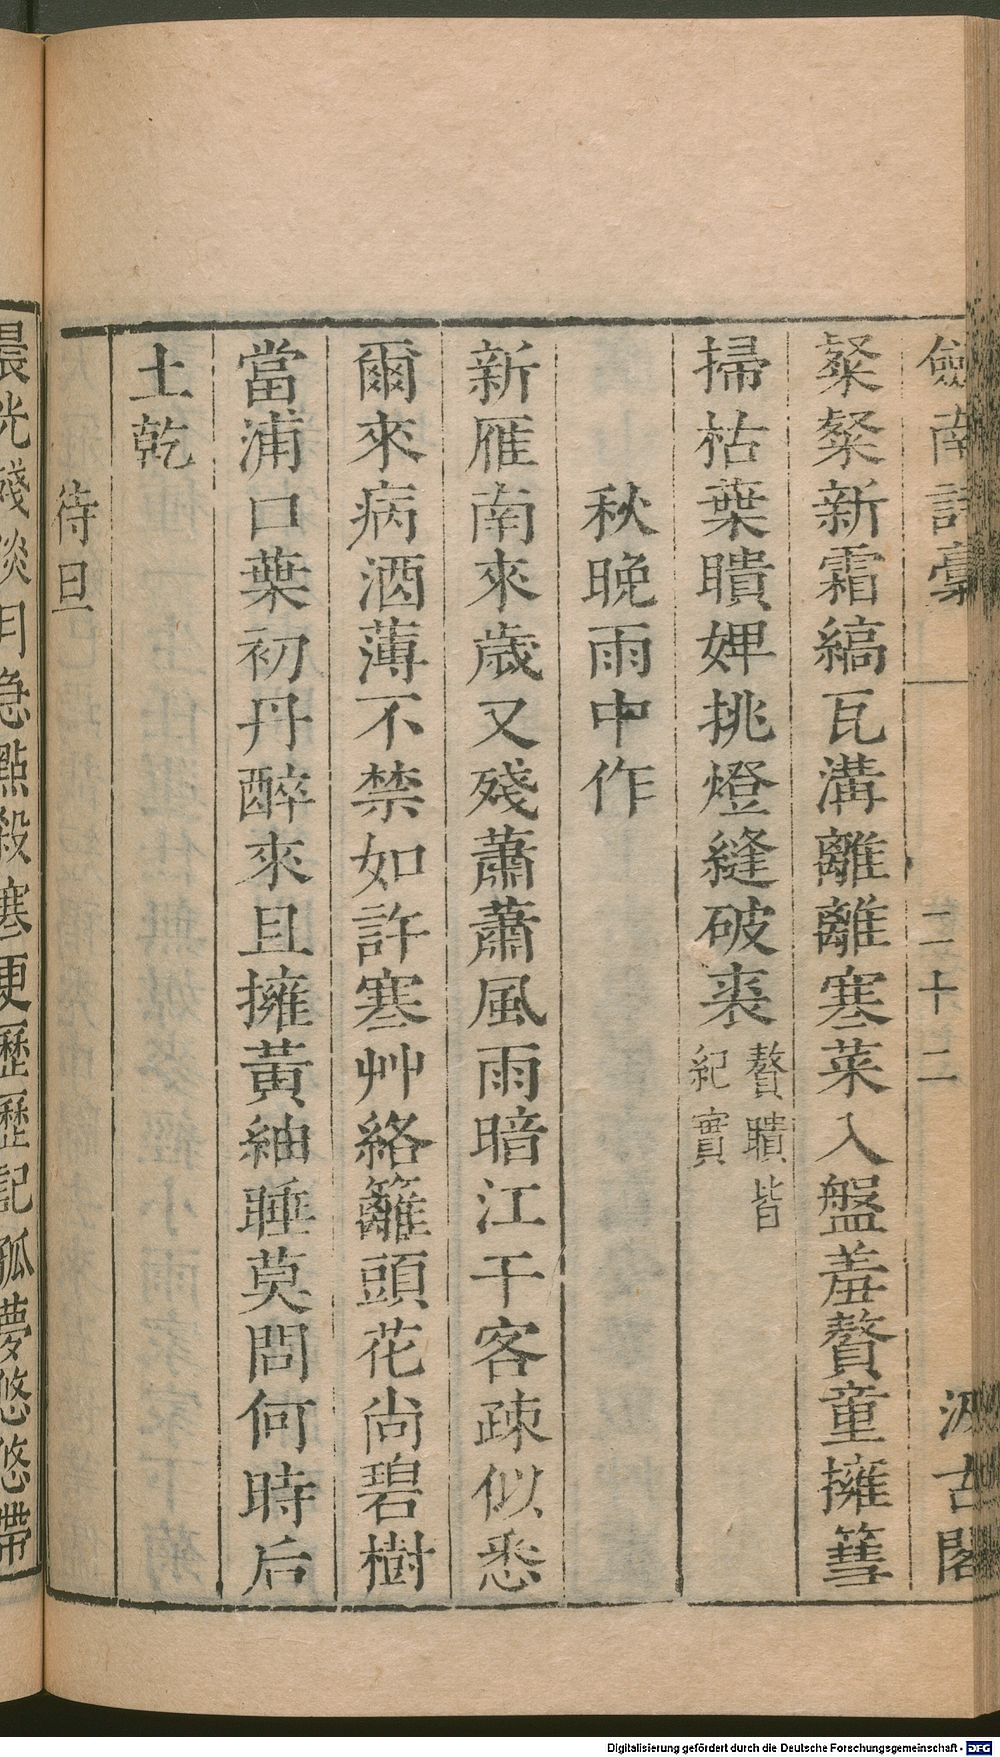 劍南詩稾 二十二 汲古閣
粲粲新霜縞瓦溝離離寒菜入盤羞贅童擁篲
掃枯葉聵婢挑燈縫破裘贅聵皆
紀實
秋晚雨中作
新雁南來歲又殘蕭蕭風雨暗江干客疎似悉
爾來病酒薄不禁如許寒艸絡籬頭花尚碧樹
當浦口葉初丹醉來且擁黃紬睡莫問何時后
土乾
待旦
晨光殘淡月急點殺寒更歷歷記孤夢悠悠帶
Digitalisierung gefördert durch die Deutsche Forschungsgemeinschaft - DFG